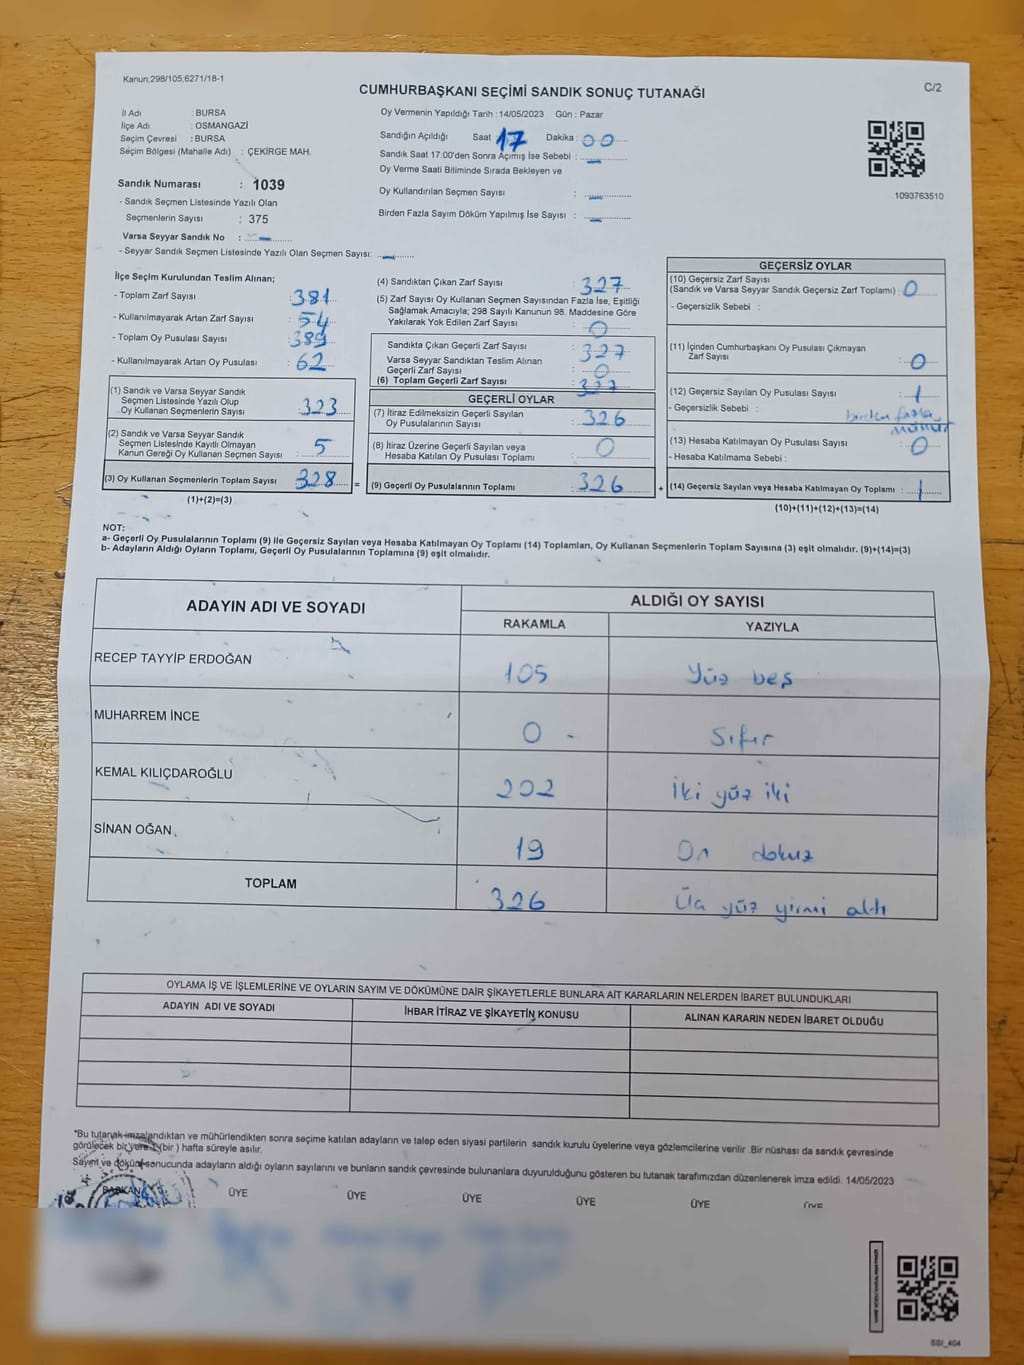 Kanun;298/105;6271/18-1
C/2
CUMHURBAŞKANI SEÇİMİ SANDIK SONUÇ TUTANAĞI
İl Adı : BURSA
İlçe Adı : OSMANGAZİ
Seçim Çevresi : BURSA
Seçim Bölgesi (Mahalle Adı) : ÇEKİRGE MAH.
Sandık Numarası : 1039
- Sandık Seçmen Listesinde Yazılı Olan
Seçmenlerin Sayısı : 375
Varsa Seyyar Sandık No :
- Seyyar Sandık Seçmen Listesinde Yazılı Olan Seçmen Sayısı:
Oy Vermenin Yapıldığı Tarih : 14/05/2023 Gün : Pazar
Sandığın Açıldığı Saat : 17 Dakika : 00
Sandık Saat 17:00'den Sonra Açımış İse Sebebi :
Oy Verme Saati Bitiminde Sırada Bekleyen ve
Oy Kullandırılan Seçmen Sayısı :
Birden Fazla Sayım Döküm Yapılmış İse Sayısı :
1093763510
İlçe Seçim Kurulundan Teslim Alınan;
- Toplam Zarf Sayısı : 381
- Kullanılmayarak Artan Zarf Sayısı : 54
- Toplam Oy Pusulası Sayısı : 389
- Kullanılmayarak Artan Oy Pusulası : 62
(1) Sandık ve Varsa Seyyar Sandık
Seçmen Listesinde Yazılı Olup
Oy Kullanan Seçmenlerin Sayısı : 323
(2) Sandık ve Varsa Seyyar Sandık
Seçmen Listesinde Kayıtlı Olmayan
Kanun Gereği Oy Kullanan Seçmen Sayısı : 5
(3) Oy Kullanan Seçmenlerin Toplam Sayısı : 328
(1)+(2)=(3)
(4) Sandıktan Çıkan Zarf Sayısı : 327
(5) Zarf Sayısı Oy Kullanan Seçmen Sayısından Fazla İse, Eşitliği
Sağlamak Amacıyla; 298 Sayılı Kanunun 98. Maddesine Göre
Yakılarak Yok Edilen Zarf Sayısı : 0
Sandıkta Çıkan Geçerli Zarf Sayısı : 327
Varsa Seyyar Sandıktan Teslim Alınan
Geçerli Zarf Sayısı : 0
(6) Toplam Geçerli Zarf Sayısı : 327
GEÇERLİ OYLAR
(7) İtiraz Edilmeksizin Geçerli Sayılan
Oy Pusulalarının Sayısı : 326
(8) İtiraz Üzerine Geçerli Sayılan veya
Hesaba Katılan Oy Pusulası Toplamı : 0
= (9) Geçerli Oy Pusulalarının Toplamı : 326 +
GEÇERSİZ OYLAR
(10) Geçersiz Zarf Sayısı
(Sandık ve Varsa Seyyar Sandık Geçersiz Zarf Toplamı) : 0
- Geçersizlik Sebebi :
(11) İçinden Cumhurbaşkanı Oy Pusulası Çıkmayan
Zarf Sayısı : 0
(12) Geçersiz Sayılan Oy Pusulası Sayısı : 1
- Geçersizlik Sebebi : birden fazla
mühür
(13) Hesaba Katılmayan Oy Pusulası Sayısı : 0
- Hesaba Katılmama Sebebi :
(14) Geçersiz Sayılan veya Hesaba Katılmayan Oy Toplamı : 1
(10)+(11)+(12)+(13)=(14)
NOT:
a- Geçerli Oy Pusulalarının Toplamı (9) ile Geçersiz Sayılan veya Hesaba Katılmayan Oy Toplamı (14) Toplamları, Oy Kullanan Seçmenlerin Toplam Sayısına (3) eşit olmalıdır. (9)+(14)=(3)
b- Adayların Aldığı Oyların Toplamı, Geçerli Oy Pusulalarının Toplamına (9) eşit olmalıdır.
ADAYIN ADI VE SOYADI
ALDIĞI OY SAYISI
RAKAMLA YAZIYLA
RECEP TAYYİP ERDOĞAN 105 Yüz beş
MUHARREM İNCE 0 Sıfır
KEMAL KILIÇDAROĞLU 202 İki yüz iki
SİNAN OĞAN 19 On dokuz
TOPLAM 326 Üç yüz yirmi altı
OYLAMA İŞ VE İŞLEMLERİNE VE OYLARIN SAYIM VE DÖKÜMÜNE DAİR ŞİKAYETLERLE BUNLARA AİT KARARLARIN NELERDEN İBARET BULUNDUKLARI
ADAYIN ADI VE SOYADI İHBAR İTİRAZ VE ŞİKAYETİN KONUSU ALINAN KARARIN NEDEN İBARET OLDUĞU
*Bu tutanak imzalandıktan ve mühürlendikten sonra seçime katılan adayların ve talep eden siyasi partilerin sandık kurulu üyelerine veya gözlemcilerine verilir .Bir nüshası da sandık çevresinde
görülecek bir yere 1(bir ) hafta süreyle asılır.
Sayım ve döküm sonucunda adayların aldığı oyların sayılarını ve bunların sandık çevresinde bulunanlara duyurulduğunu gösteren bu tutanak tarafımızdan düzenlenerek imza edildi. 14/05/2023
BAŞKAN ÜYE ÜYE ÜYE ÜYE ÜYE ÜYE
SSI_404